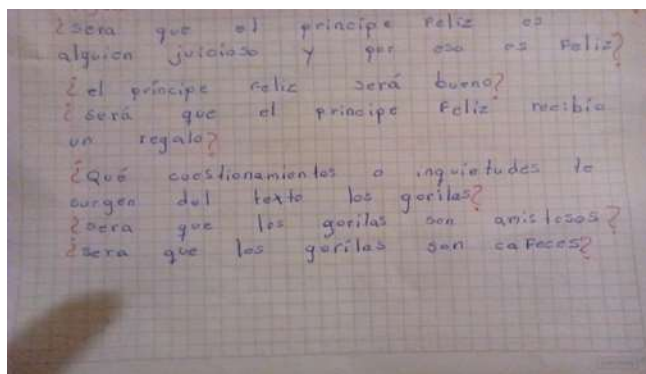 ¿sera que el principe Feliz es
alguien juicioso y por eso es Feliz?
¿el príncipe Feliz será bueno?
¿será que el principe Feliz recibio
un regalo?
¿Qué cuestionamientos o inquietudes te
surgen del texto los gorilas?
¿sera que los gorilas son amistosos?
¿sera que los gorilas son caFeces?